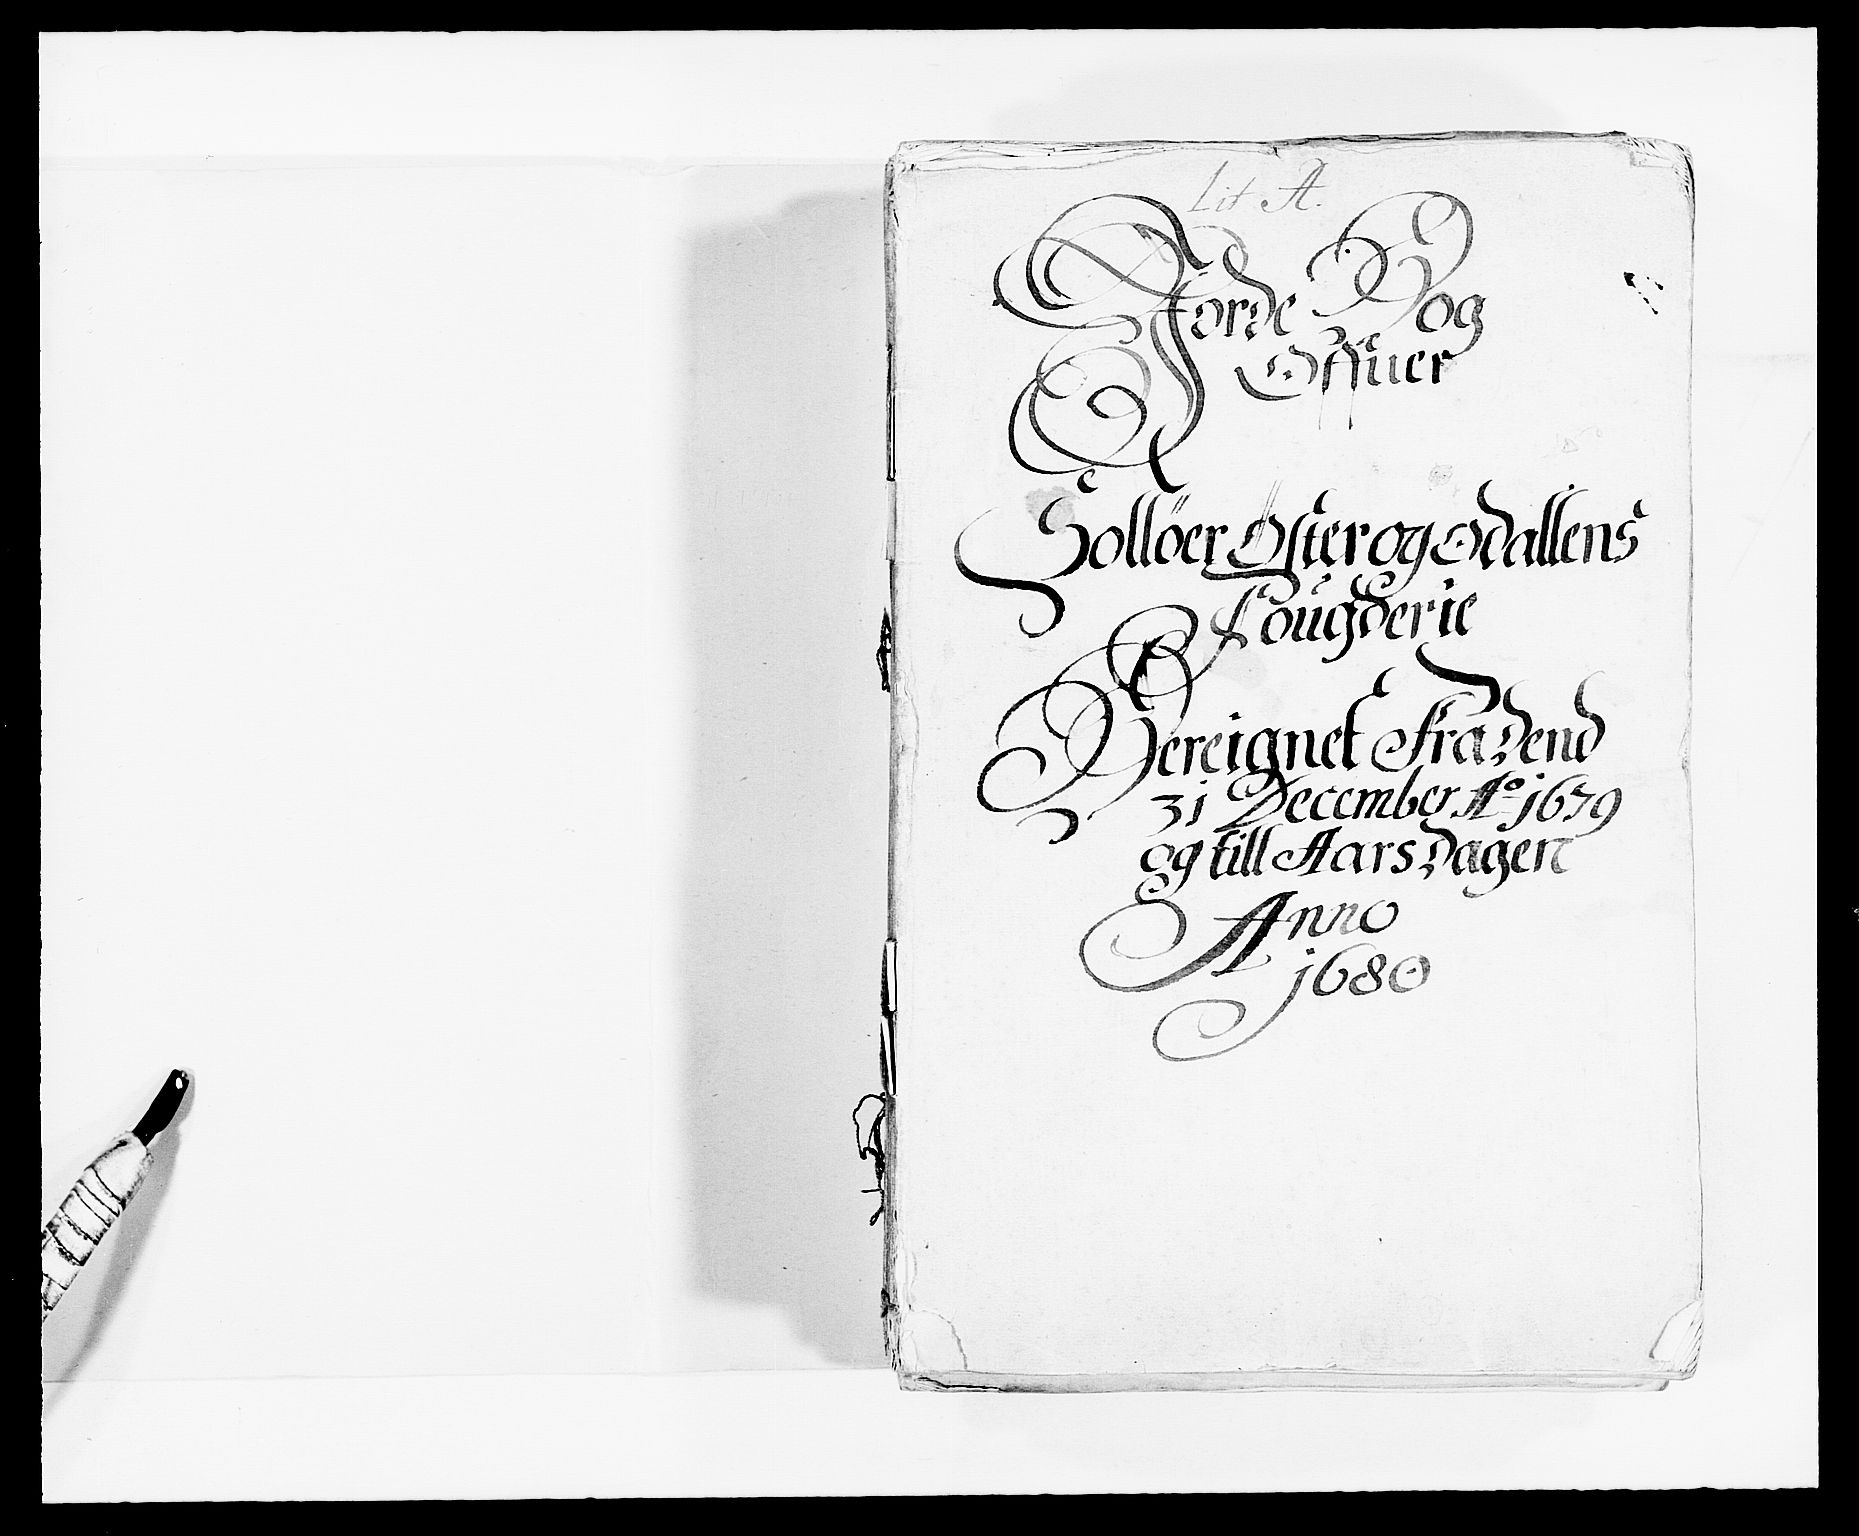 Lit A.
Jorde Bog
Offuer
Solløer Øster og Odallens
Fougderie
Bereignet Fra Dend
31 December Ao 1679
og till Aars Dagen
Anno
1680